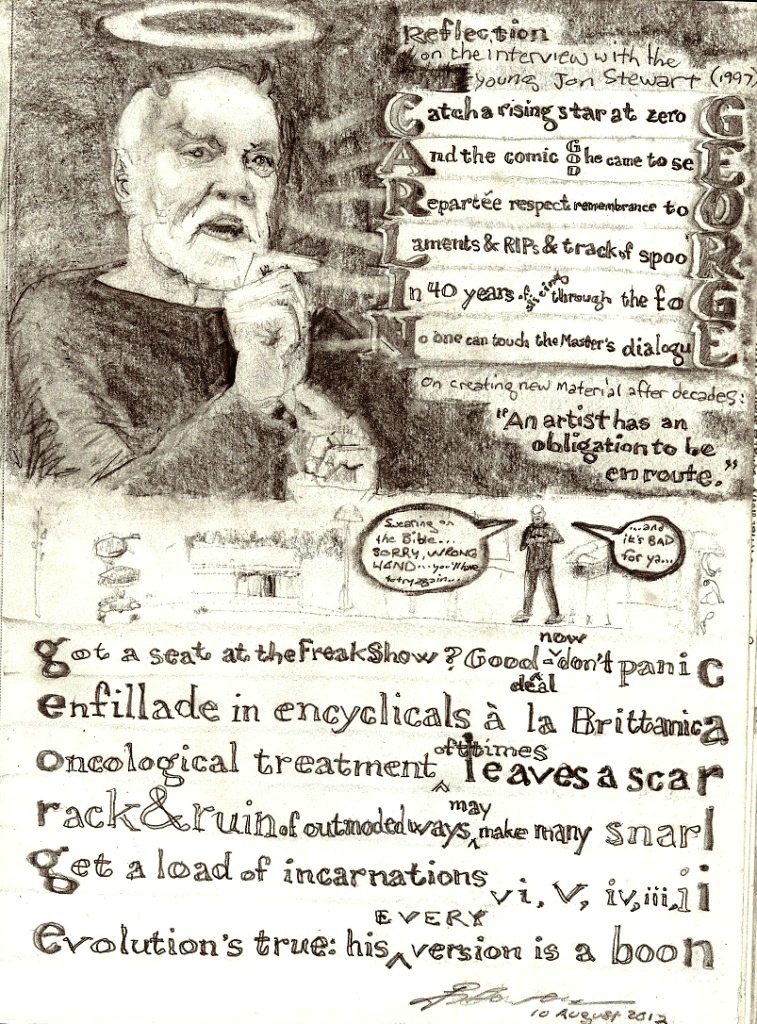 Reflection
on the interview with the
young Jon Stewart (1997)
Catch a rising star at zero G
And the comic GOD he came to se E
Repartée respect remembrance to O
Laments & RIPs & track of spoo R
In 40 years of through the fo G
No one can touch the Master's dialogu E
On creating new material after decades:
"An artist has an
obligation to be
en route."
Swearing on
the Bible...
SORRY, WRONG
HAND... you'll have
to try again...
...and
it's BAD
for ya...
got a seat at the FreakShow? Good - now don't panic
enfillade in encyclicals deal à la Brittanica
oncological treatment ofttimes leaves a scar
rack & ruin of outmoded ways may make many snarl
get a load of incarnations vi, v, iv, iii, ii
evolution's true: his EVERY version is a boon
10 August 2012